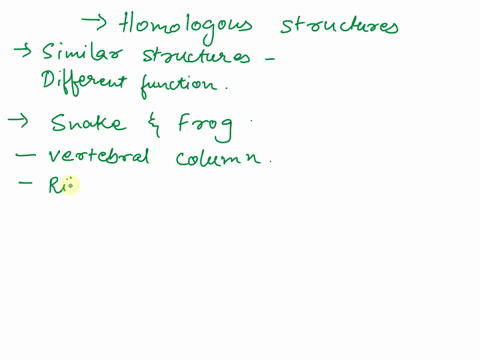 → Homologous structures
→ Similar structures -
Different function.
→ Snake & Frog.
- vertebral column.
- Ri